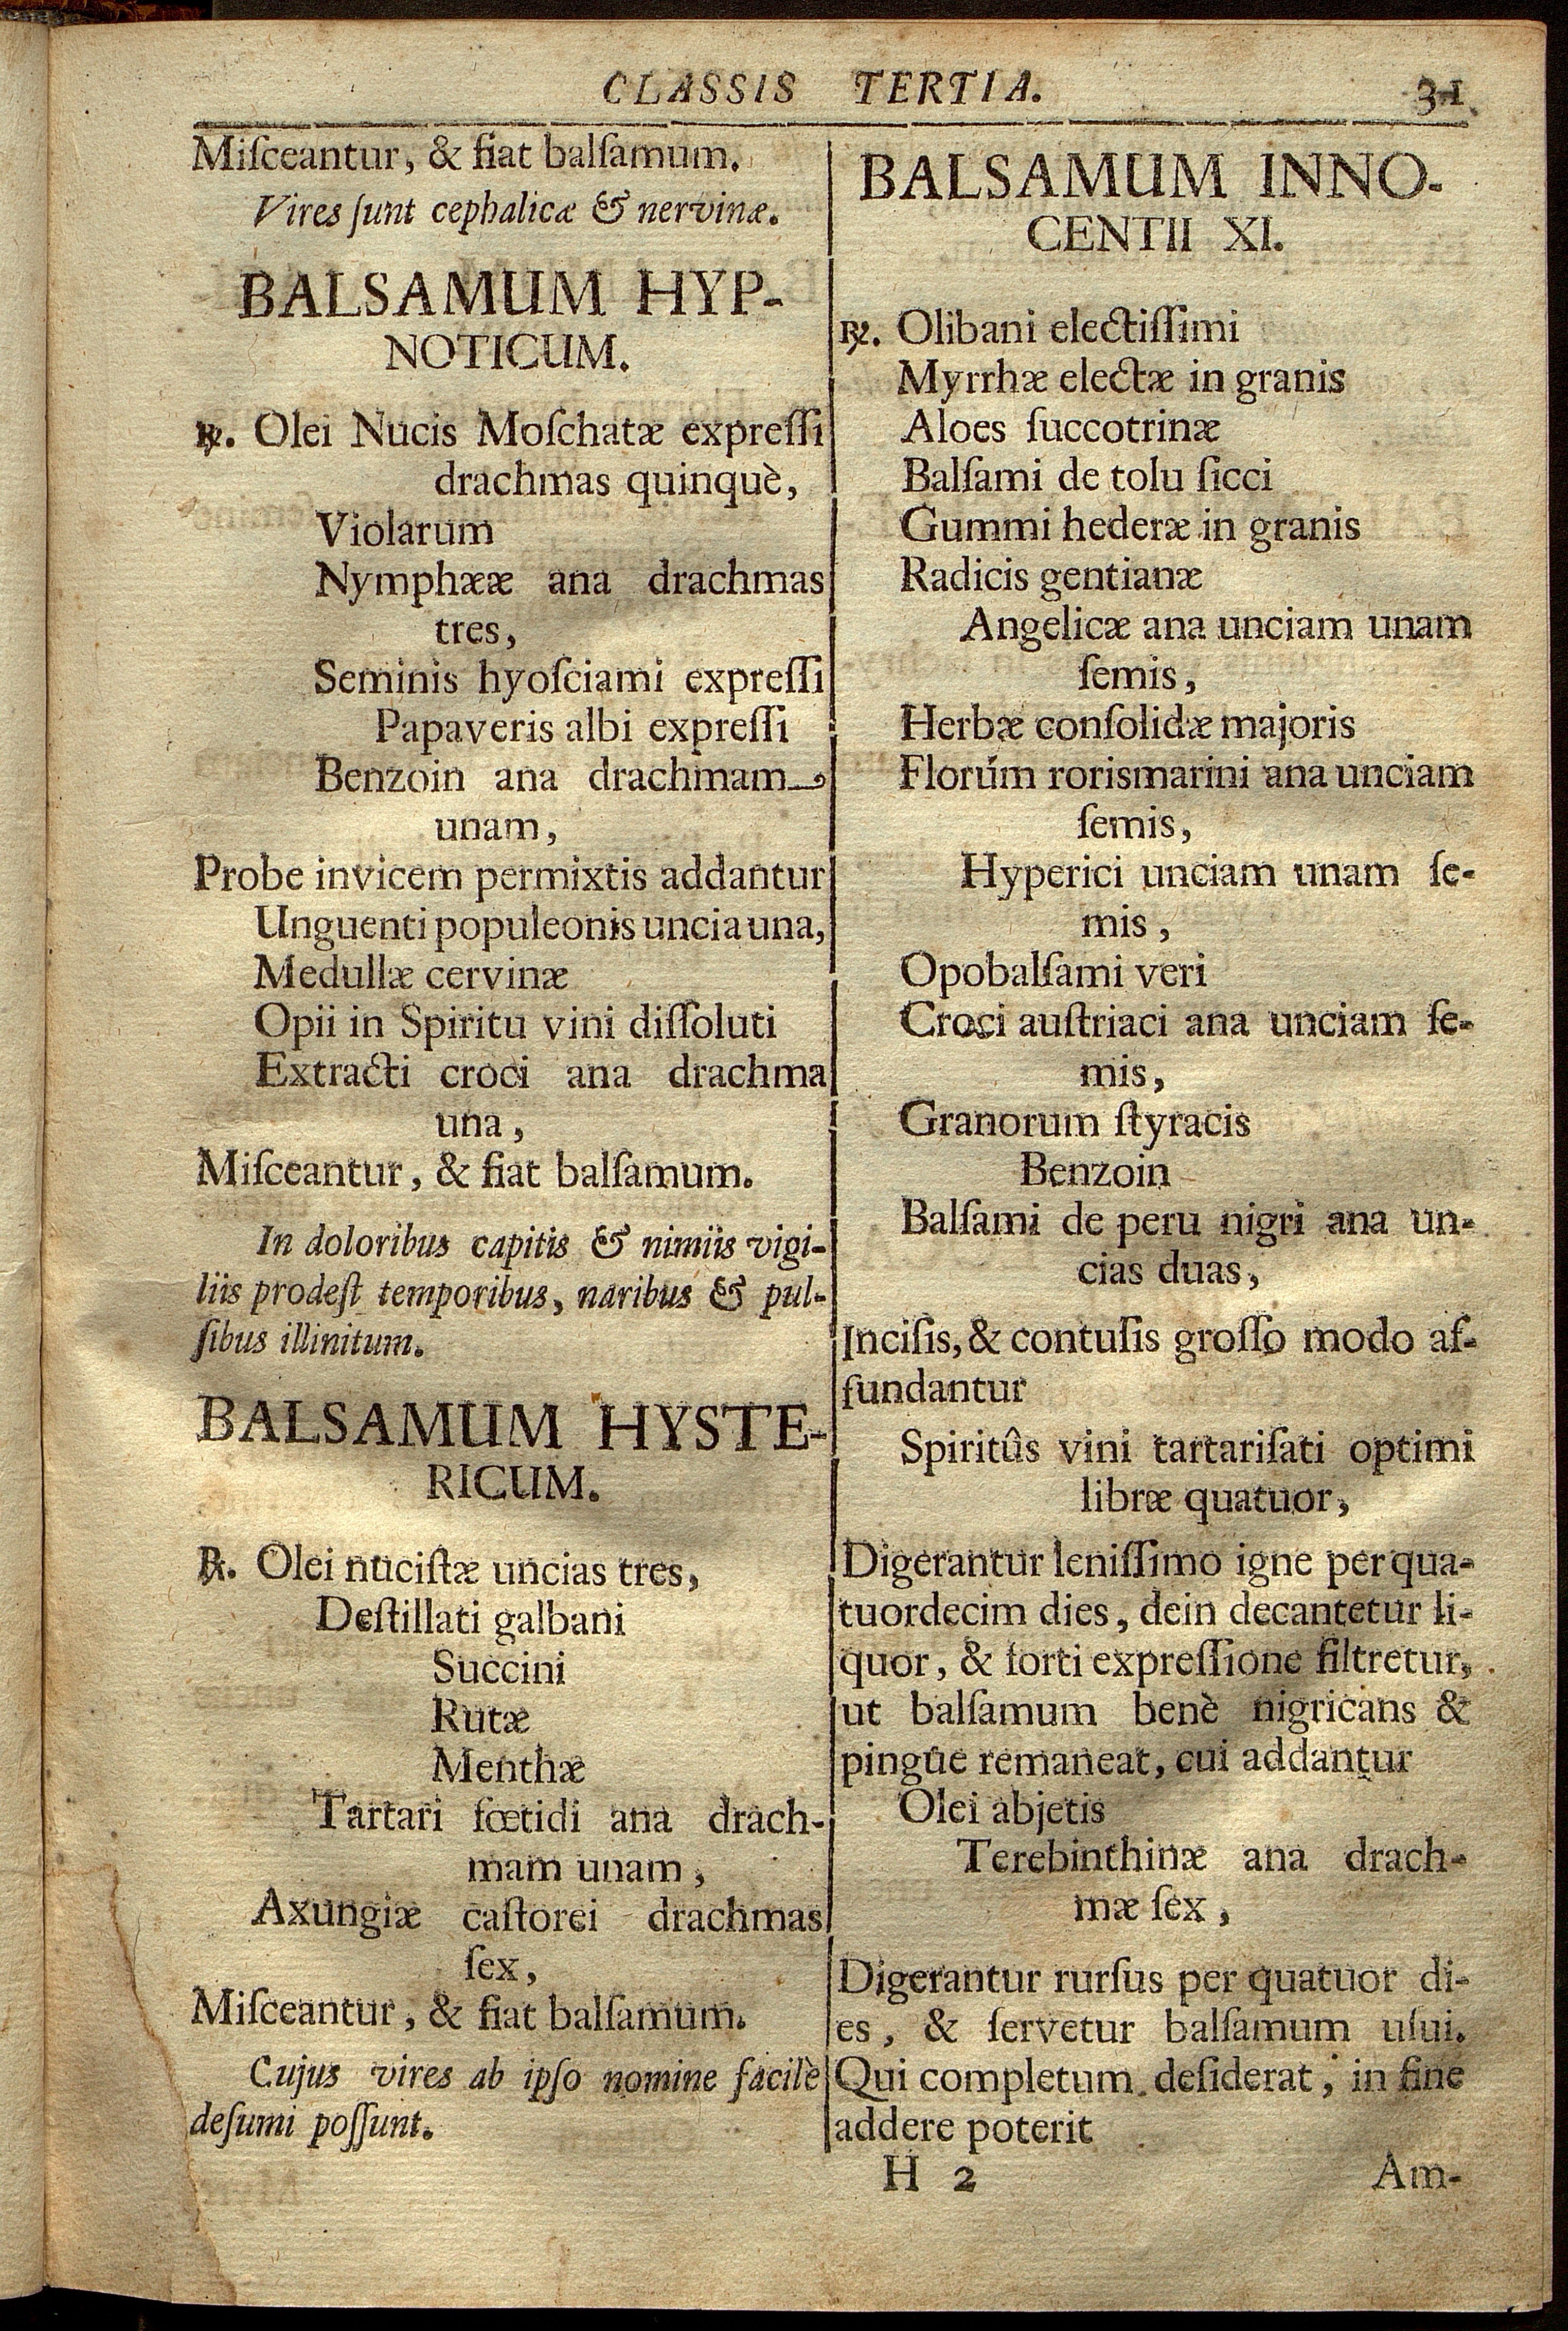 CLASSIS TERTIA. 31
Miſceantur, & fiat balſamum.
Vires ſunt cephalicæ & nervinæ.
BALSAMUM HYP-
NOTICUM.
℞. Olei Nucis Moſchatæ expreſſi
drachmas quinquè,
Violarum
Nymphææ ana drachmas
tres,
Seminis hyoſciami expreſſi
Papaveris albi expreſſi
Benzoin ana drachmam
unam,
Probe invicem permixtis addantur
Unguenti populeonis uncia una,
Medullæ cervinæ
Opii in Spiritu vini diſſoluti
Extracti croci ana drachma
una,
Miſceantur, & fiat balſamum.
In doloribus capitis & nimiis vigi-
liis prodeſt temporibus, naribus & pul-
ſibus illinitum.
BALSAMUM HYSTE-
RICUM.
℞. Olei nuciſtæ uncias tres,
Deſtillati galbani
Succini
Rutæ
Menthæ
Tartari fœtidi ana drach-
mam unam,
Axungiæ caſtorei drachmas
ſex,
Miſceantur, & fiat balſamum.
Cujus vires ab ipſo nomine facilè
deſumi poſſunt.
BALSAMUM INNO-
CENTII XI.
℞. Olibani electiſſimi
Myrrhæ electæ in granis
Aloes ſuccotrinæ
Balſami de tolu ſicci
Gummi hederæ in granis
Radicis gentianæ
Angelicæ ana unciam unam
ſemis,
Herbæ conſolidæ majoris
Florúm rorismarini ana unciam
ſemis,
Hyperici unciam unam ſe-
mis,
Opobalſami veri
Croci auſtriaci ana unciam ſe-
mis,
Granorum ſtyracis
Benzoin
Balſami de peru nigri ana un-
cias duas,
Inciſis, & contuſis groſſo modo af-
fundantur
Spiritûs vini tartariſati optimi
libræ quatuor,
Digerantur leniſſimo igne per qua-
tuordecim dies, dein decantetur li-
quor, & forti expreſſione filtretur,
ut balſamum benè nigricans &
pingûe remaneat, cui addantur
Olei abjetis
Terebinthinæ ana drach-
mæ ſex,
Digerantur rurſus per quatuor di-
es, & ſervetur balſamum uſui.
Qui completum deſiderat, in fine
addere poterit
H 2 Am-